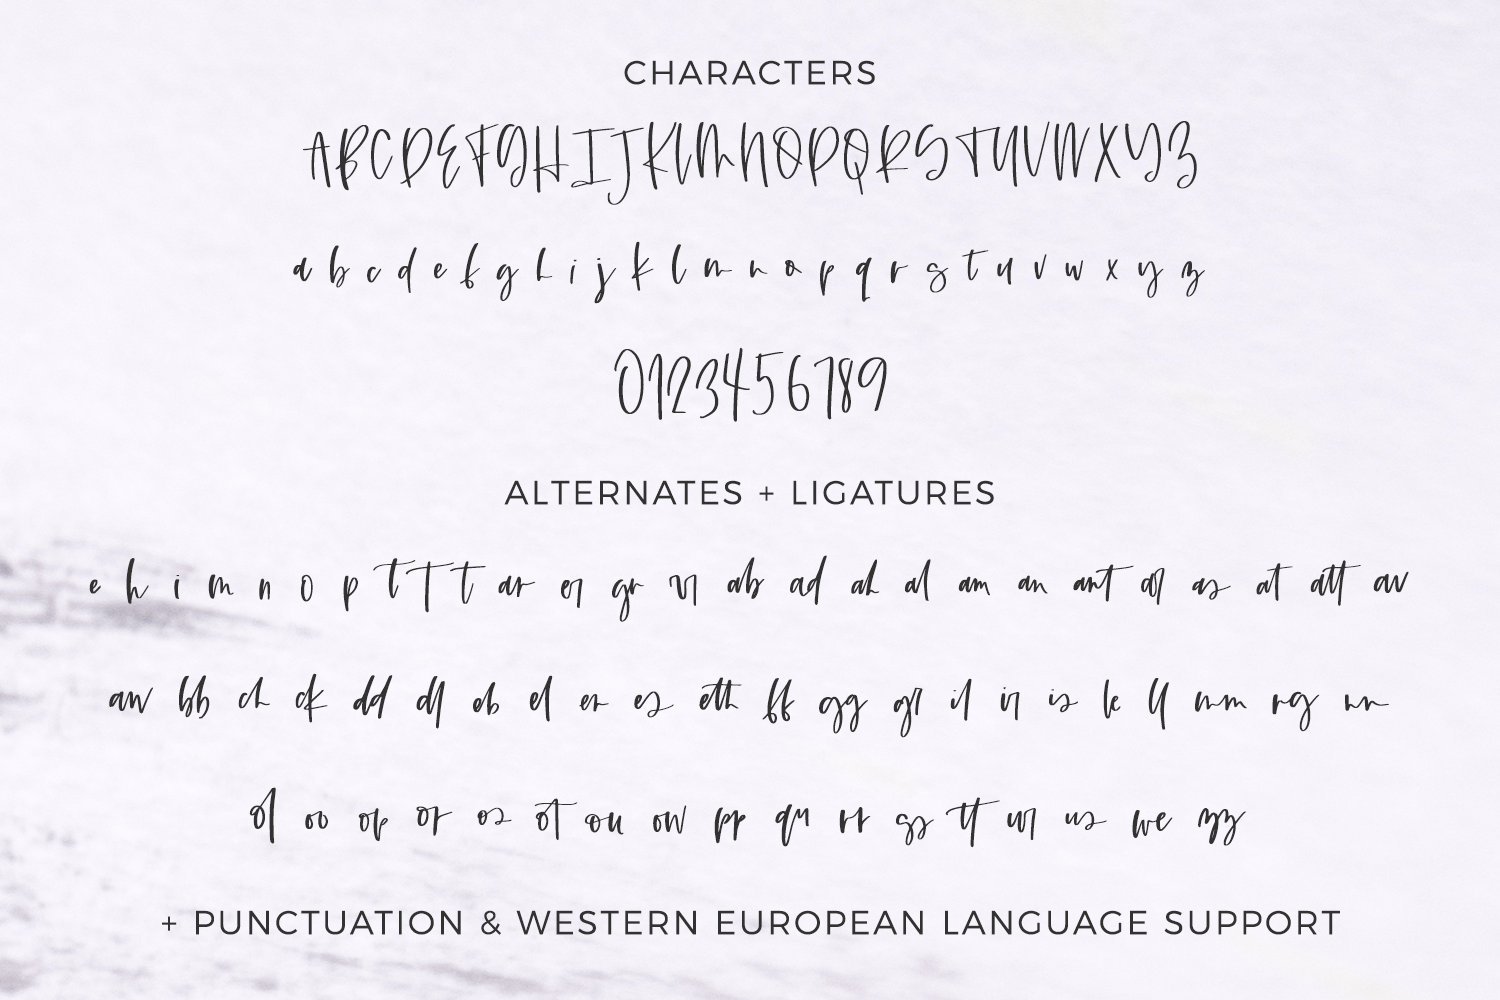 CHARACTERS
ABCDEFGHIJKLMNOPQRSTUVWXYZ
a b c d e f g h i j k l m n o p q r s t u v w x y z
0123456789
ALTERNATES + LIGATURES
e h i m n o p t t t ar er gr vr ab ad ah al am an ant as at att av
aw bb ch ck dd eb el en es eth ff gg il ir is k ll mm ng nn
ol oo op or os ot ou ow pp qu rr ss tt ur us we zz
+ PUNCTUATION & WESTERN EUROPEAN LANGUAGE SUPPORT